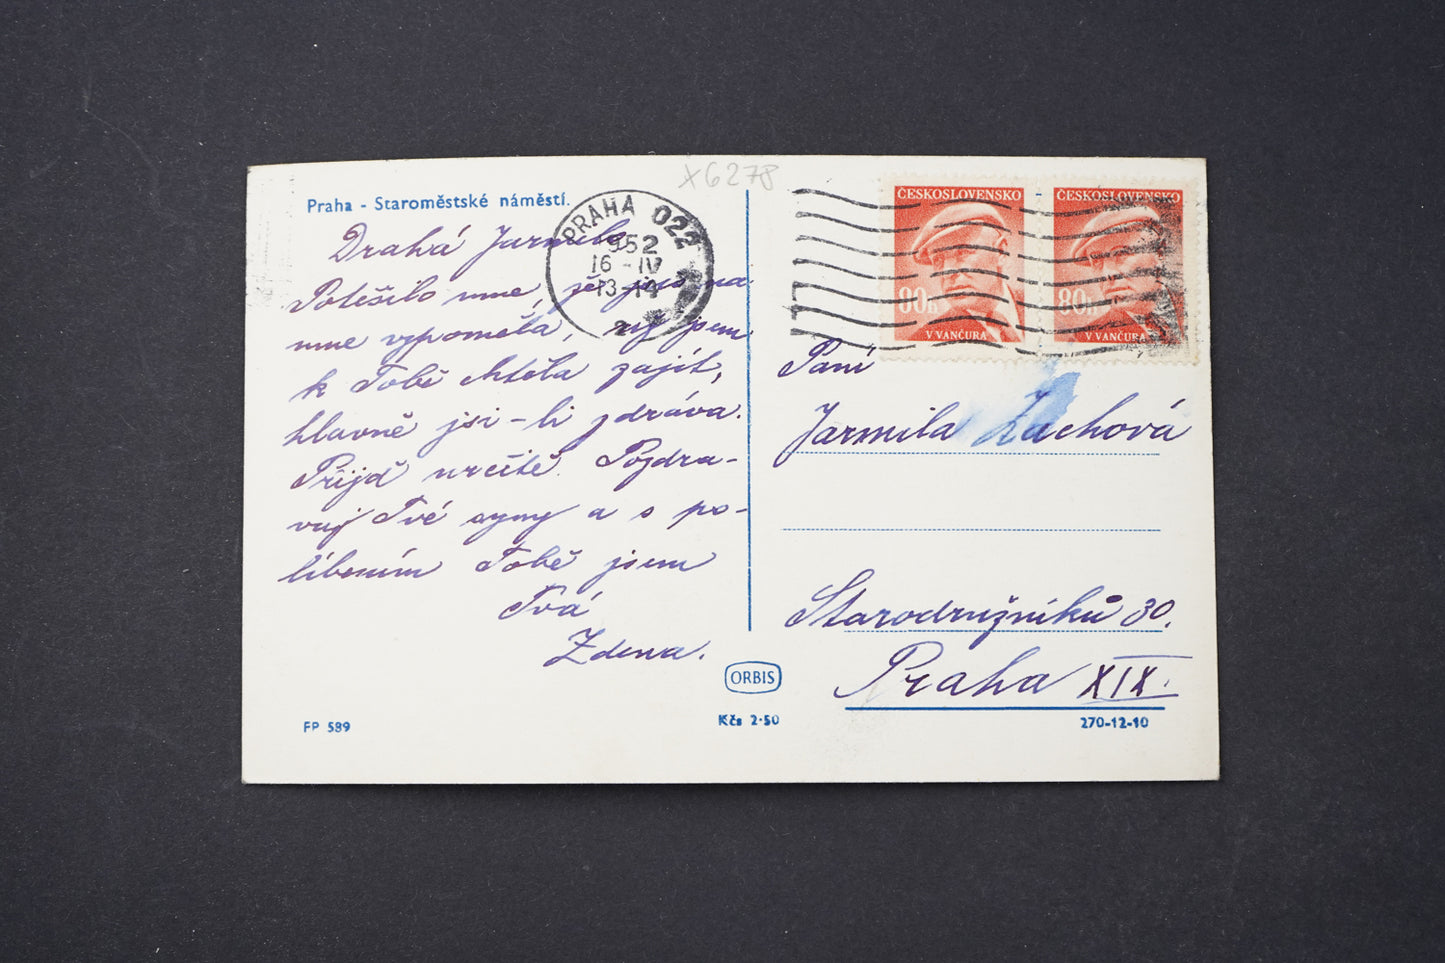 X6278
Praha - Staroměstské náměstí.
PRAHA 022
952
16 - IV
13-14
2
ČESKOSLOVENSKO
80h
V VANČURA
ČESKOSLOVENSKO
80h
V VANČURA
Drahá Jarmilo
Potěšilo mne, že jsi na
mne vzpoměla, jsem
k Tobě chtěla zajít,
hlavně jsi-li zdráva.
Přijď určitě. Pozdra-
vuj Tvé syny a s po-
líbením Tobě jsem
Tvá
Zdena.
Paní
Jarmila Zachová
Starodružníků 30.
Praha XIX.
ORBIS
FP 589
Kčs 2·50
270-12-10